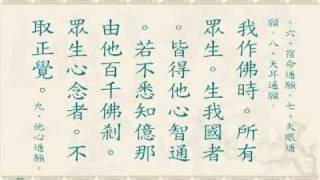 。六、宿命通願。七、天眼通
願。八、天耳通願。
我作佛時。所有
眾生。生我國者
。皆得他心智通
。若不悉知億那
由他百千佛剎。
眾生心念者。不
取正覺。九、他心通願。